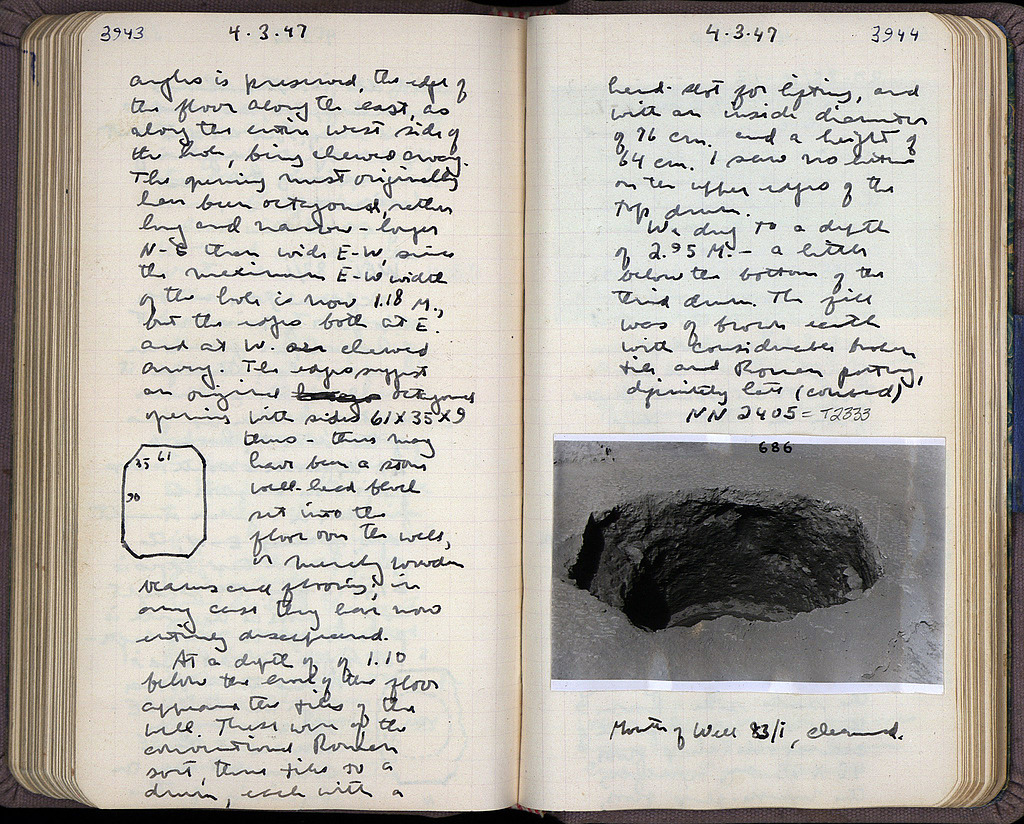 3943
4.3.47
angles is preserved, the edge of
the floor along the east, as
along the entire west side of
the hole, being chewed away.
The opening must originally
have been octagonal, rather
long and narrow - longer
N-S than wide E-W, since
the maximum E-W width
of the hole is now 1.18 M.,
but the edges both at E.
and at W. are chewed
away. The edges suggest
an original octagonal
opening with sides 61 x 35 x 9
thus - there may
have been a stone
well-head block
set into the
floor over the well,
or merely wooden
beams and flooring; in
any case they have now
entirely disappeared.
35 61
90
At a depth of of 1.10
below the level of the floor
appeared the tiles of the
well. These were of the
conventional Roman
sort, three tiles to a
drum, each with a
4.3.47
3944
hand-slot for lifting, and
with an inside diameter
of 76 cm. and a height of
64 cm. I saw no
on the upper edges of the
top drum.
We dug to a depth
of 2.95 M. - a little
below the bottom of the
third drum. The fill
was of brown earth
with considerable broken
tiles and Roman pottery,
definitely late (combed)
NN 2405 = T2333
686
Mouth of Well 83/1, cleaned.